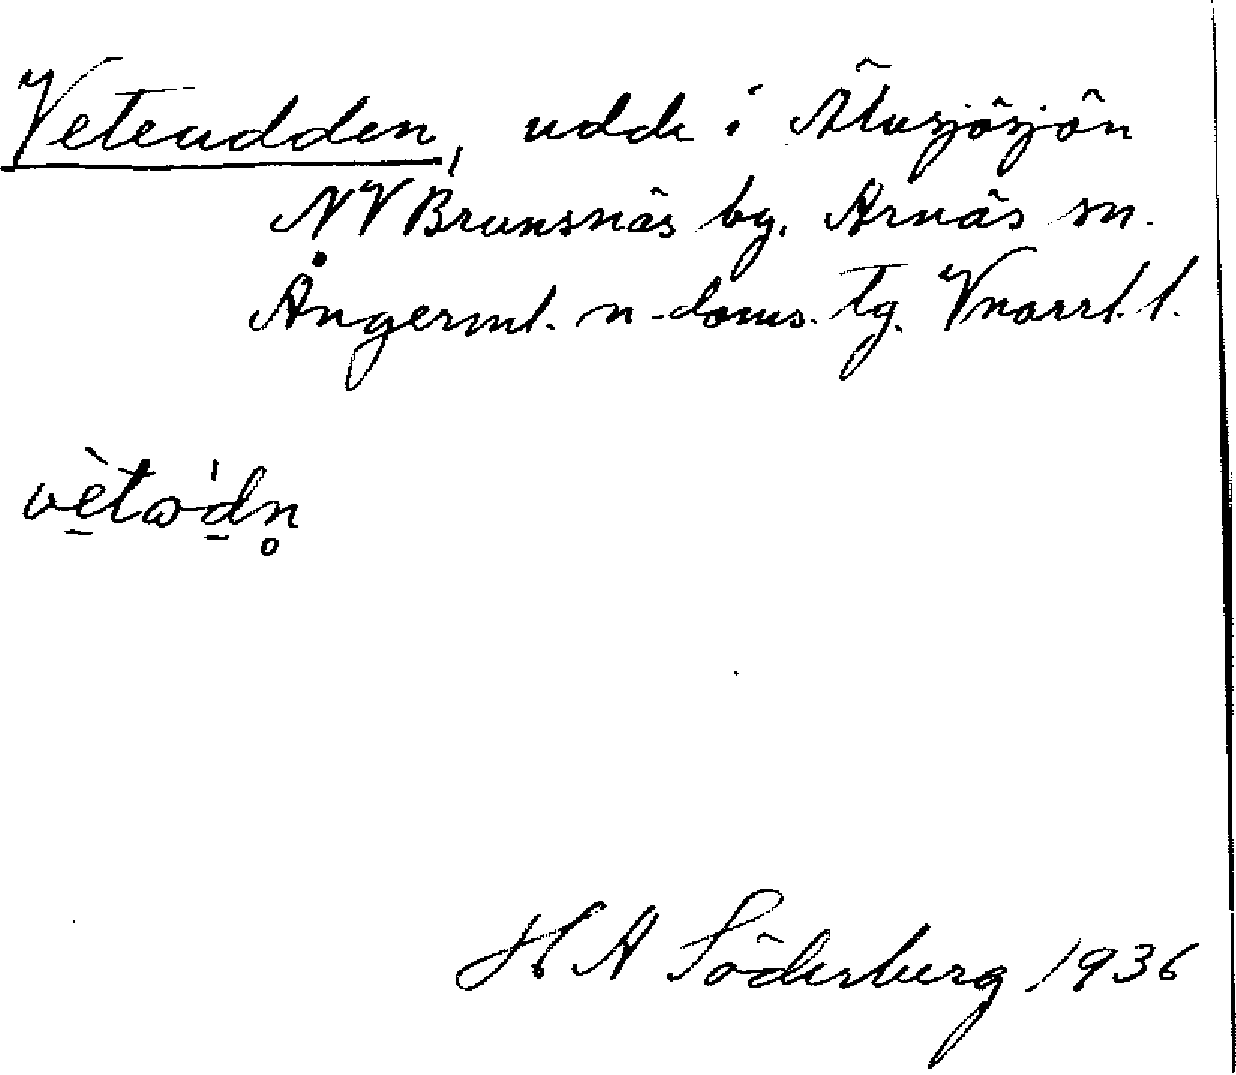 Veteudden, udde i Älusjösjön
NV Brunsnäs by. Arnäs sn.
Ångerml. n-doms. tg. Vnorrl. l.
vètω'dn̥
H A Söderberg 1936